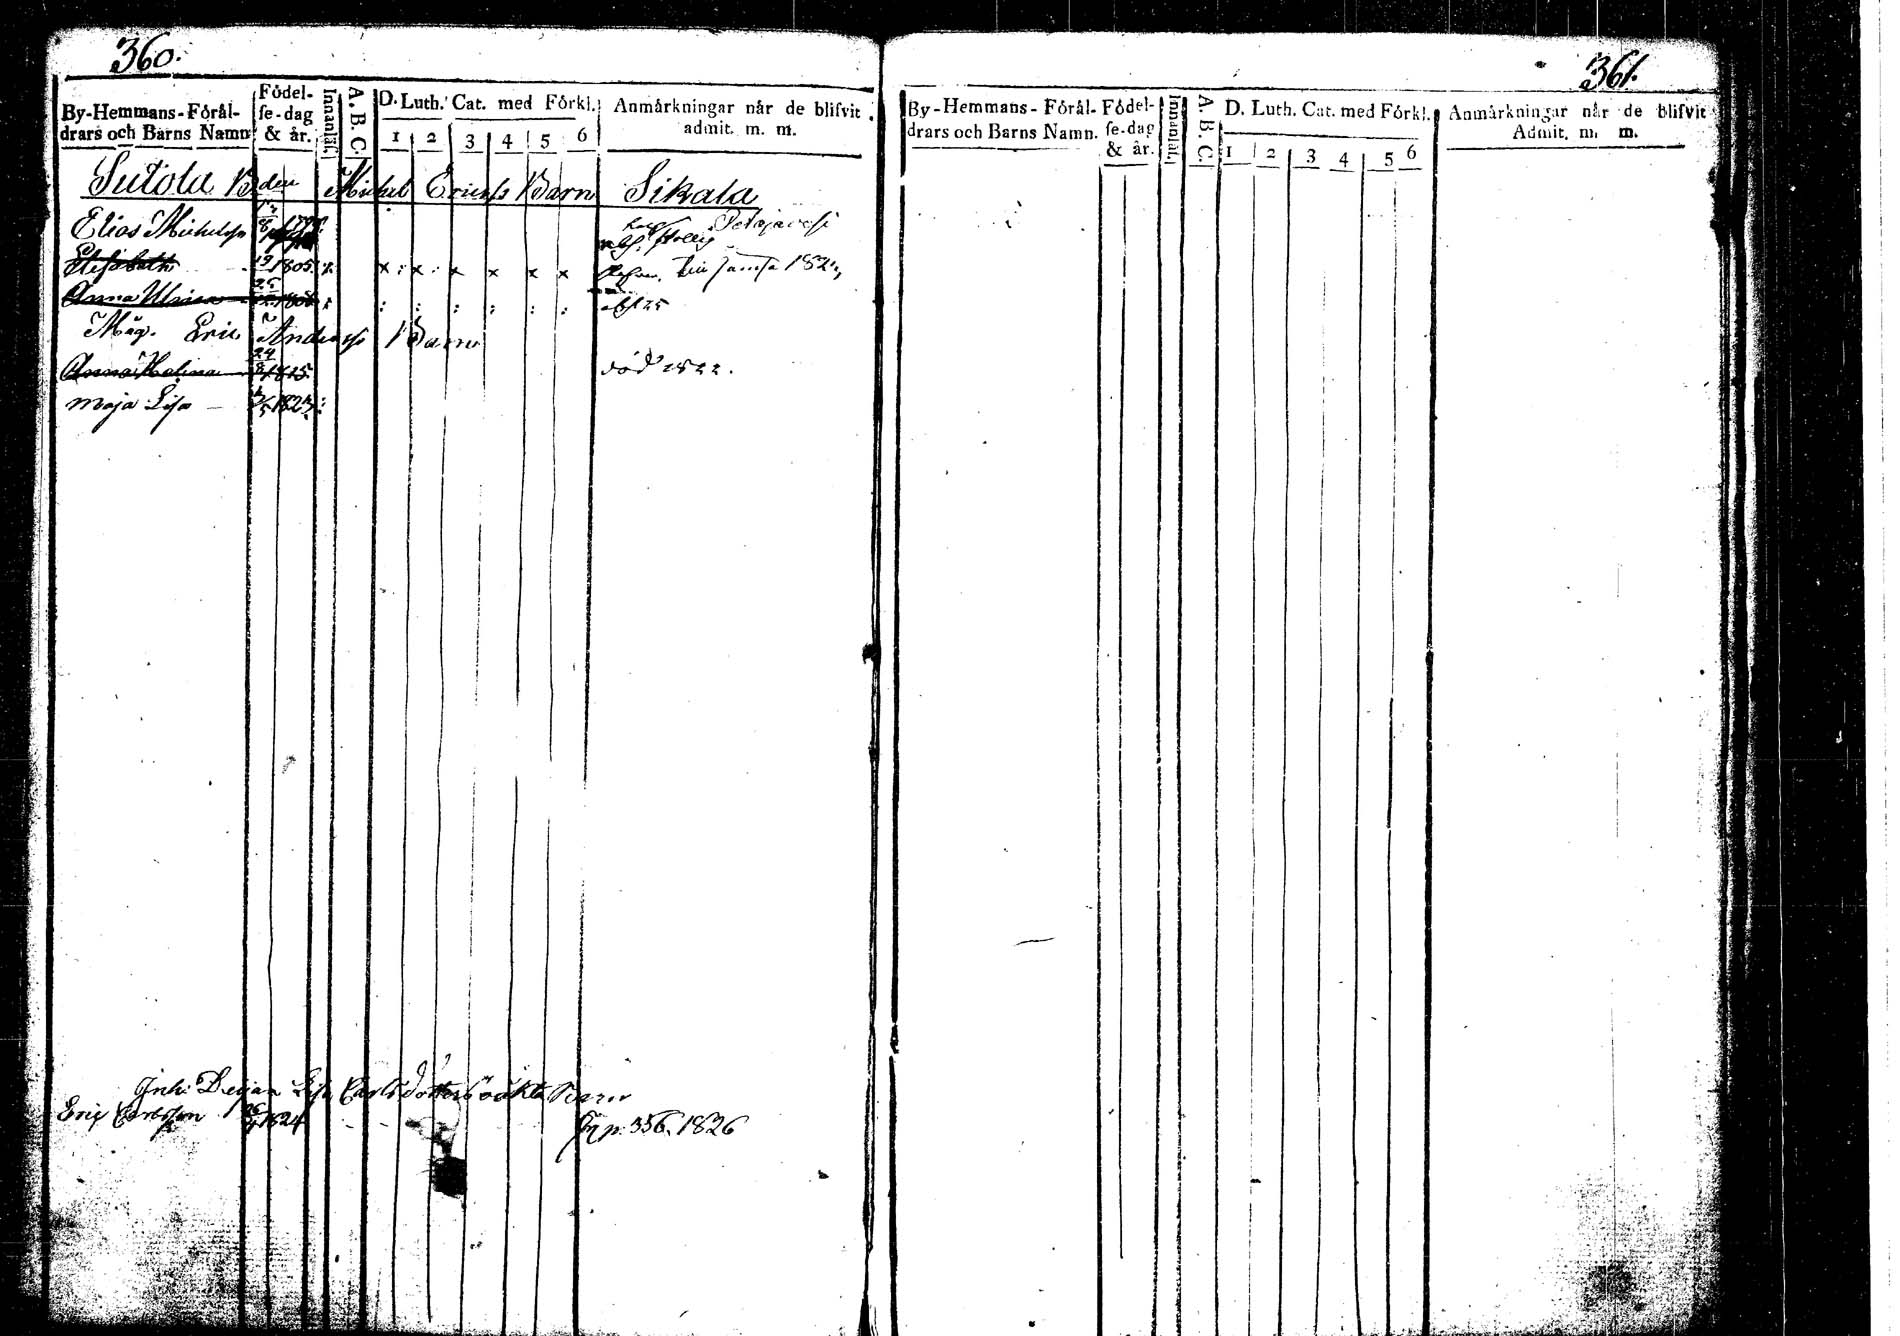 360.
By-Hemmans-Föräl-
drars och Barns Namn
Födel-
se-dag
& år.
Innanläs.
A. B. C.
D. Luth. Cat. med Förkl.
1 2 3 4 5 6
Anmärkningar når de blifvit
admit. m. m.
Sutola Bden Michel Ericss Barn Sikala
Elias Michelss Petäjävesi
Elisabeth 19 1805 x : x : x x x x 182
Anna Ulrica : : : : : :
Måg. Eric Anderss Barn
Anna Helina 24 1815 död 1822.
Maja Lisa — 1823
Inh: Lisa Carlsdotters oäkta Barn
Eric Carlsson 26 1824 p. 356. 1826
361.
By-Hemmans-Föräl-
drars och Barns Namn.
Födel-
se-dag
& år.
Innanläs.
A. B. C.
D. Luth. Cat. med Förkl.
1 2 3 4 5 6
Anmärkningar når de blifvit
Admit. m. m.